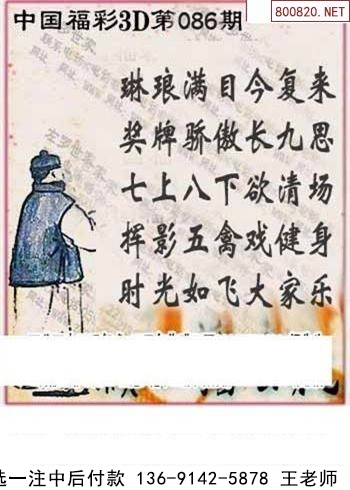 中国福彩3D第086期
800820.NET
琳琅满目今复来
奖牌骄傲长九思
七上八下欲清场
挥影五禽戏健身
时光如飞大家乐
选一注中后付款 136-9142-5878 王老师